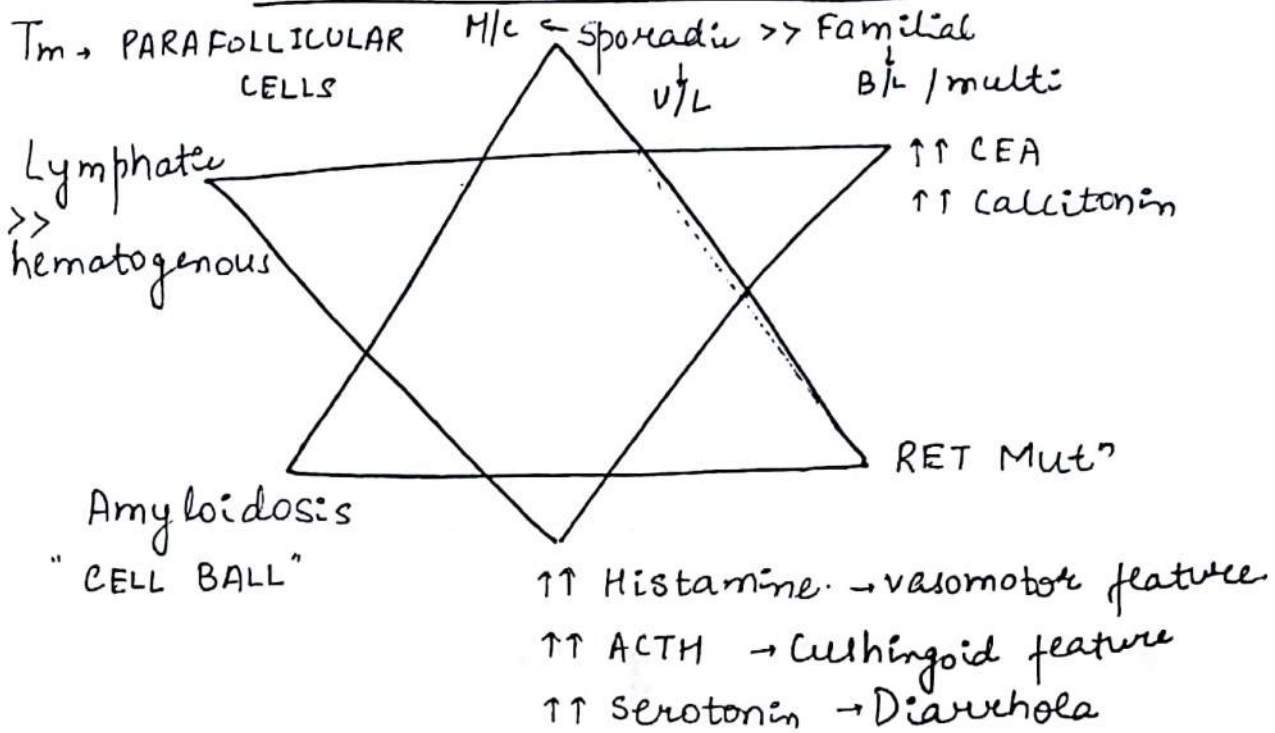 Tm → PARAFOLLICULAR
CELLS
M/c ← Sporadic >> Familial
↓ ↓
U/L B/L / multi
Lymphatic
>>
hematogenous
↑↑ CEA
↑↑ Calcitonin
RET Mutⁿ
Amyloidosis
"CELL BALL"
↑↑ Histamine. → vasomotor feature
↑↑ ACTH → Cushingoid feature
↑↑ Serotonin → Diarrhoea